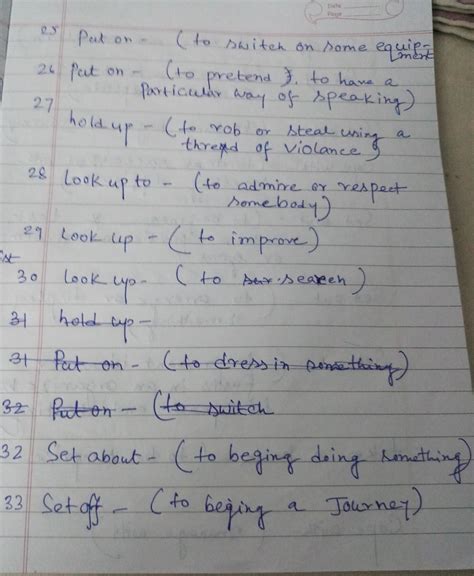 Date
Page
25 Put on - (to switch on some equip-
ment
26 Put on - (to pretend }. to have a
particular way of speaking)
27
hold up - (to rob or steal using a
thread of violance)
28 Look up to - (to admire or respect
somebody)
29 Look up - (to improve)
30 Look up - (to sur search)
31 hold up -
31 Put on - (to dress in something)
32 Put on - (to switch
32 Set about - (to beging doing something)
33 Set off - (to beging a Journey)